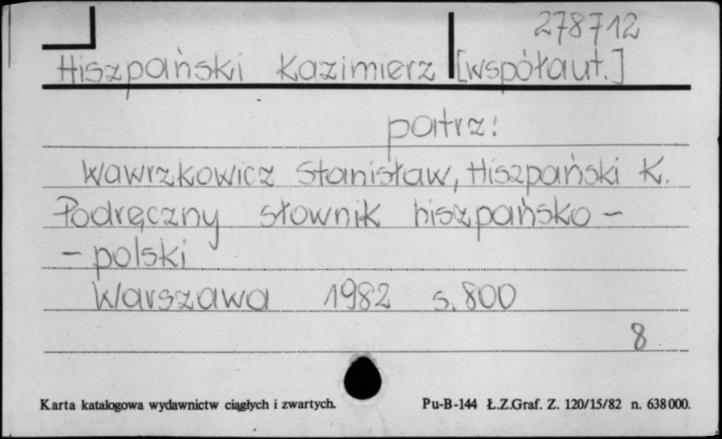 278712
Hiszpański Kazimierz [współaut.]
patrz:
Wawrzkowicz Stanisław, Hiszpański K.
Podręczny słownik hiszpańsko -
- polski
Warszawa 1982 s. 800
8
Karta katalogowa wydawnictw ciągłych i zwartych. Pu-B-144 Ł.Z.Graf. Z. 120/15/82 n. 638000.